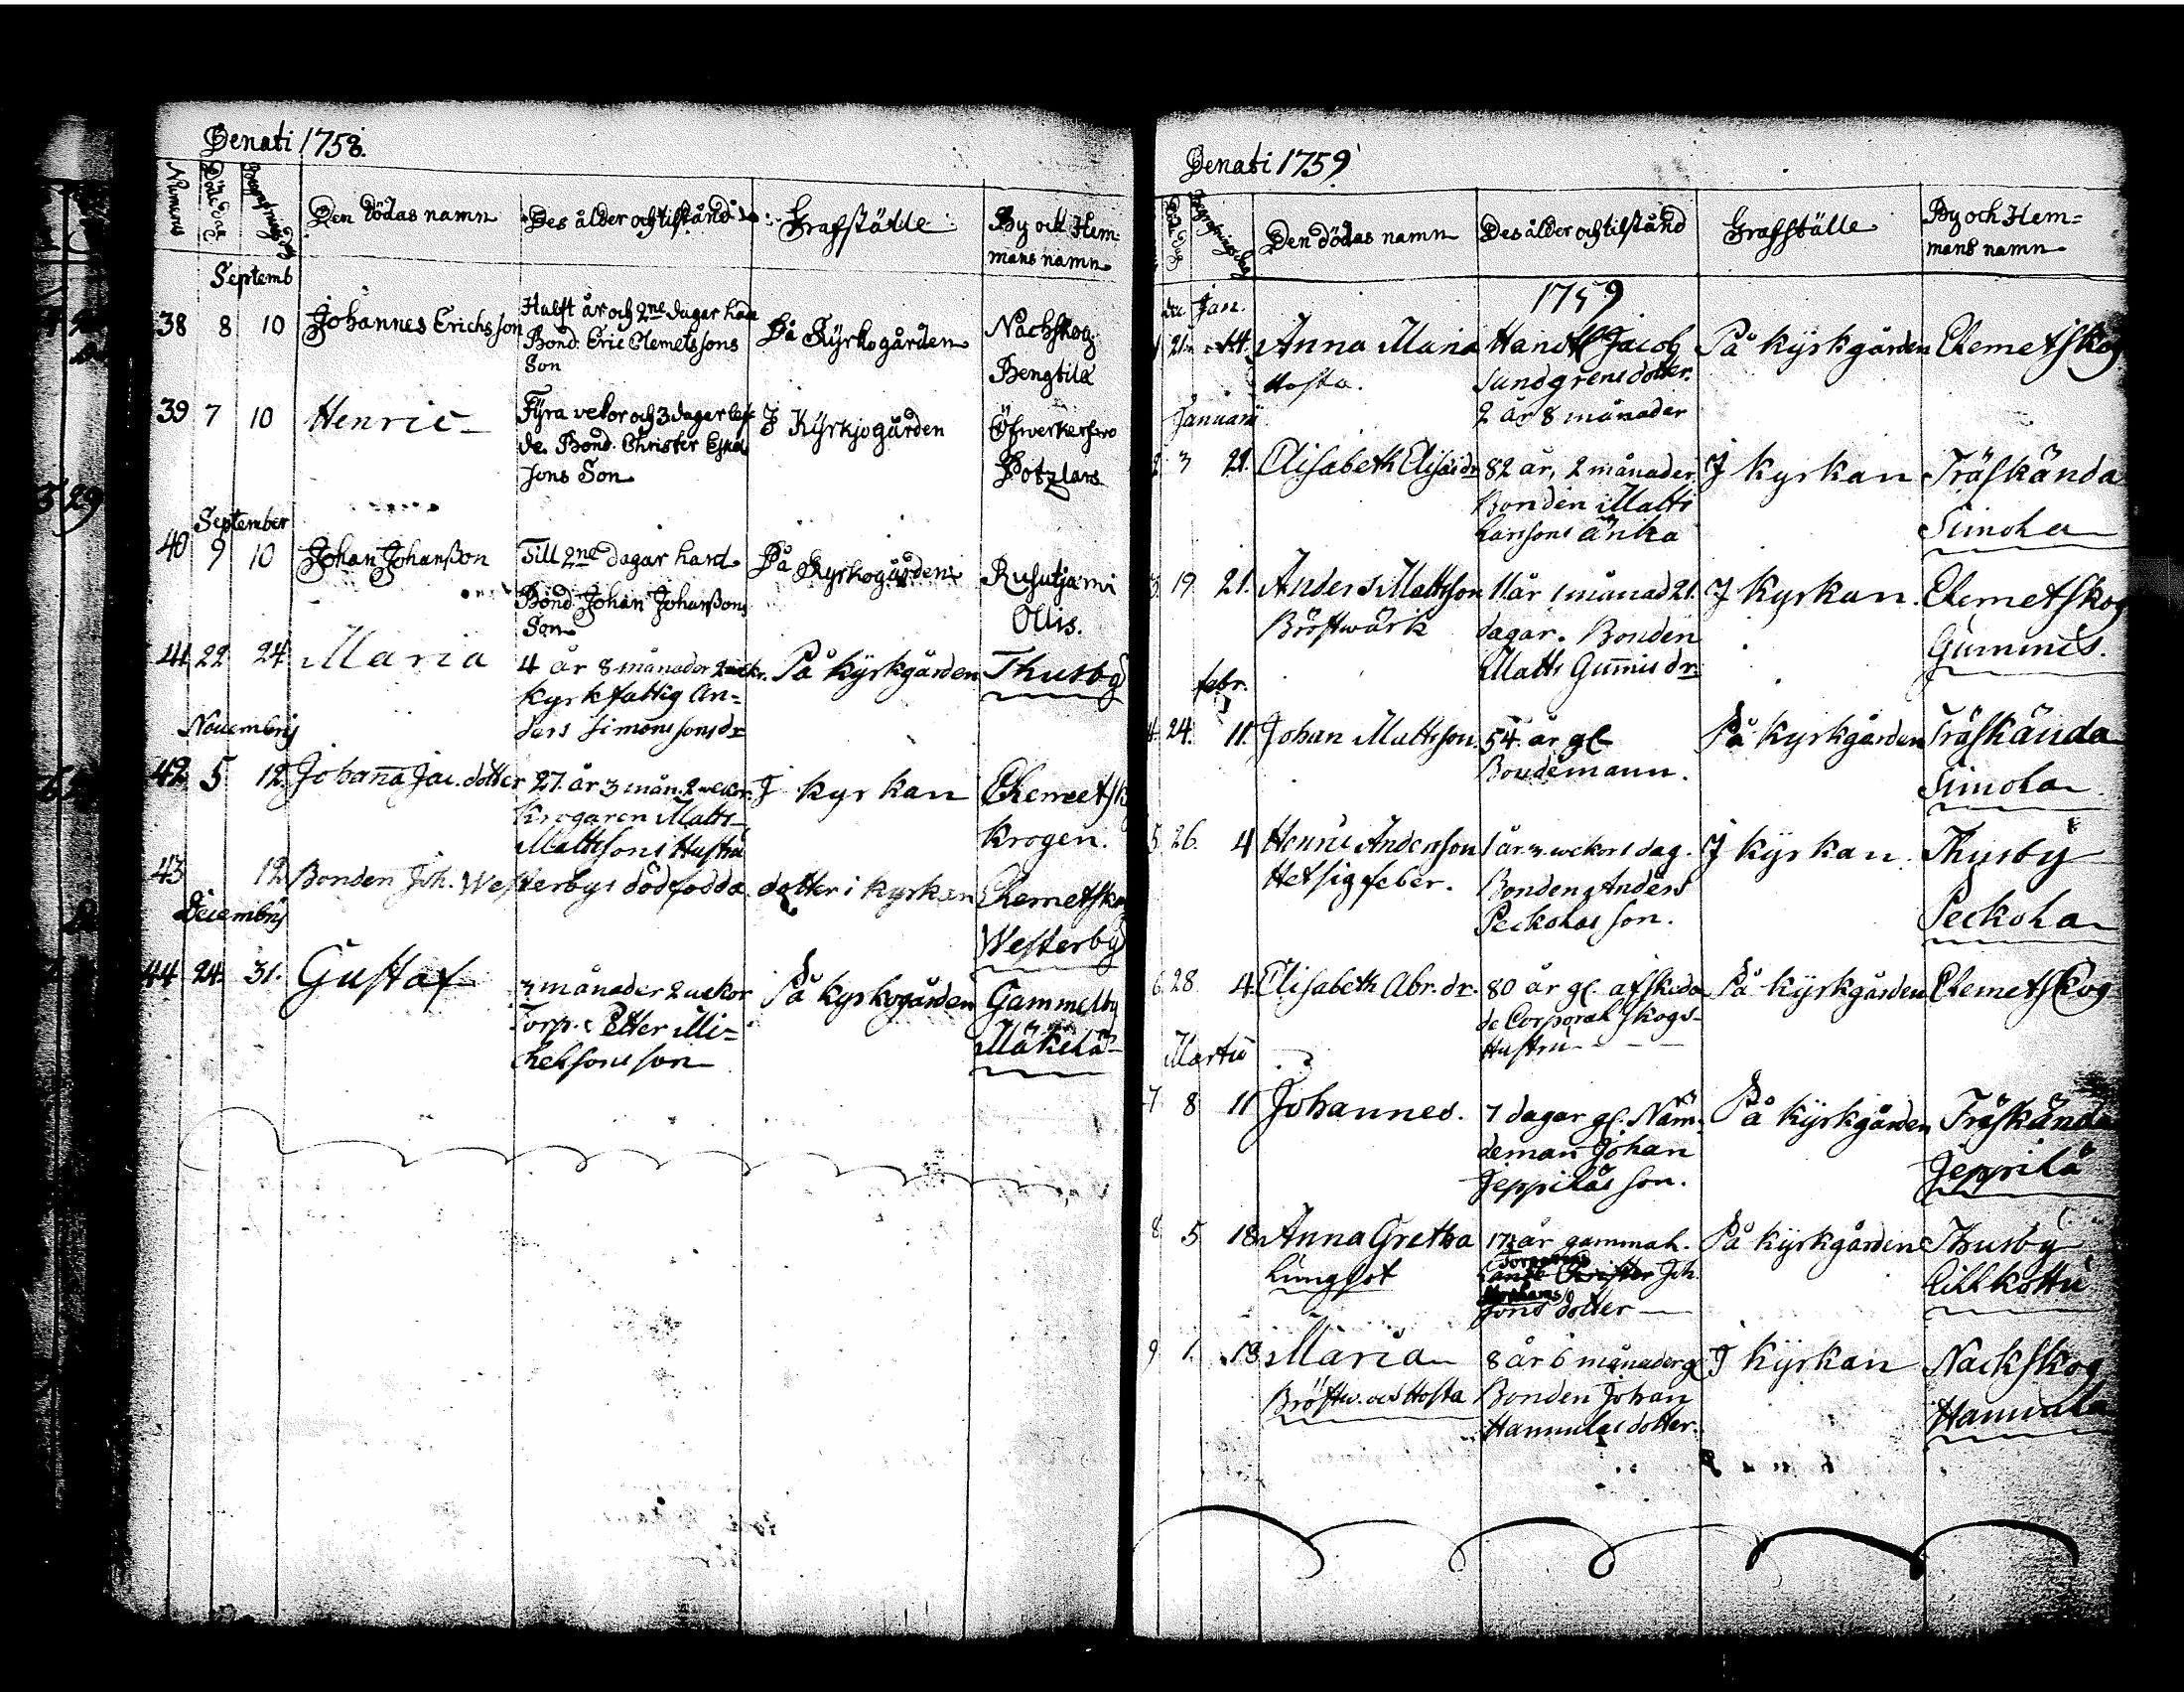 Denati 1758.
Numerus Döde dag Begrafnings dag Den dödas namn Des ålder och tilstånd Grafställe By och Hem-
mans namn
Septemb
38 8 10 Johannes Erichsson Halft år och 2ne dagar
Bond. Eric Clemetssons
Son
På Kyrkogården Nachskog
Bengtila
39 7 10 Henric Fyra vekor och 3 dagar
de. Bond. Christer
sons Son
J Kyrkjogården
Potzlars
September
40 9 10 Johan Johanßon Till 2ne dagar
Bond. Johan Johanßons
Son
På Kyrkogården Rusutjärvi
Ollis.
41 22 24 Maria 4 år 8 månader
Kyrkfattig An-
ders Simonssons dr
På Kyrkgården Thusby
Novembris
42 5 12 Johanna Jac. dotter 27 år 3 mån. 2 weckor
Krogaren Matts
Mattssons Hustru
J Kyrkan Clemetsk
Krogen.
43 12 Bonden Joh. Westerbys dödfödda dotter i kyrkan Clemetskog
Westerby
Decembris
44 24 31. Gustaf 3 månader 2 weckor
Torp. Petter Mi-
chelssons son
På Kyrkogården Gammelby
Mäkelä
Denati 1759
Döde dag Begrafnings dag Den dödas namn Des ålder och tilstånd Grafställe By och Hem-
mans namn
Jan. 1759
1 21 Anna Maria
Hosta.
Jacob
Sundgrens dotter.
2 år 8 månader
På Kyrkgården Clemetskog
Januarii
2 3 21. Elisabeth 82 år, 2 månader
Bonden Matts
Larssons änka
J Kyrkan Träskända
Simola
3 19 21. Anders Mattsson
Bröstwärk
11 år 1 månad 21.
dagar. Bonden
Matts Gummis
J Kyrkan. Clemetskog
Gummis.
febr.
4 24. 11. Johan Mattsson 54 år gl
Bondemann.
På Kyrkgården Träskända
Simola
5 26. 4 Henric Andersson
Hetsig feber.
1 år 3 wekor 1 dag.
Bonden Anders
Peckolas son.
J Kyrkan. Thusby
Peckola
6 28 4. Elisabeth Abr. dr. 80 år gl. afskeda
de Corporal Skogs
Hustru
På Kyrkgården Clemetskog
Martii
7 8 11 Johannes. 7 dagar gl. Näm-
deman Johan
Jeppiläs son.
På Kyrkgården Träskända
Jeppilä
8 5 18 Anna Gretha
Lungsot
17 år gammal.
Joh.
Abrahams
sons dotter
På Kyrkgården Thusby
Lillkottu
9 1. 18 Maria
Bröstw. och Hosta
8 år 6 månader gl
Bonden Johan
Hannulas dotter.
J Kyrkan Nackskog
Hannula